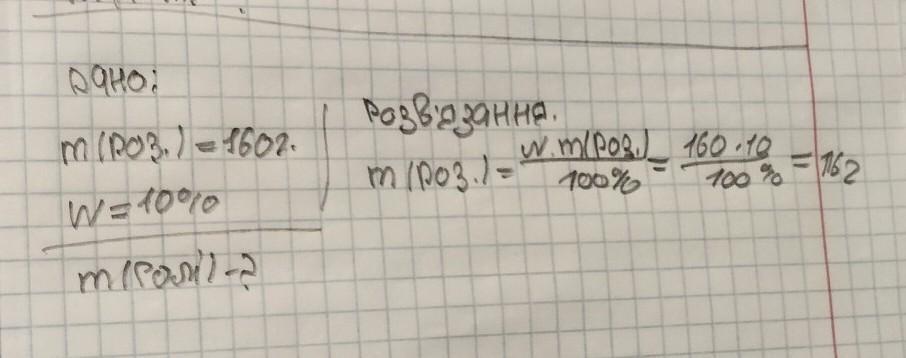 Дано:
m(роз.) = 160г.
W = 10%
m(солі) - ?
Розв'язання.
m(роз.) = W·m(роз.)/100% = 160·10/100% = 16г